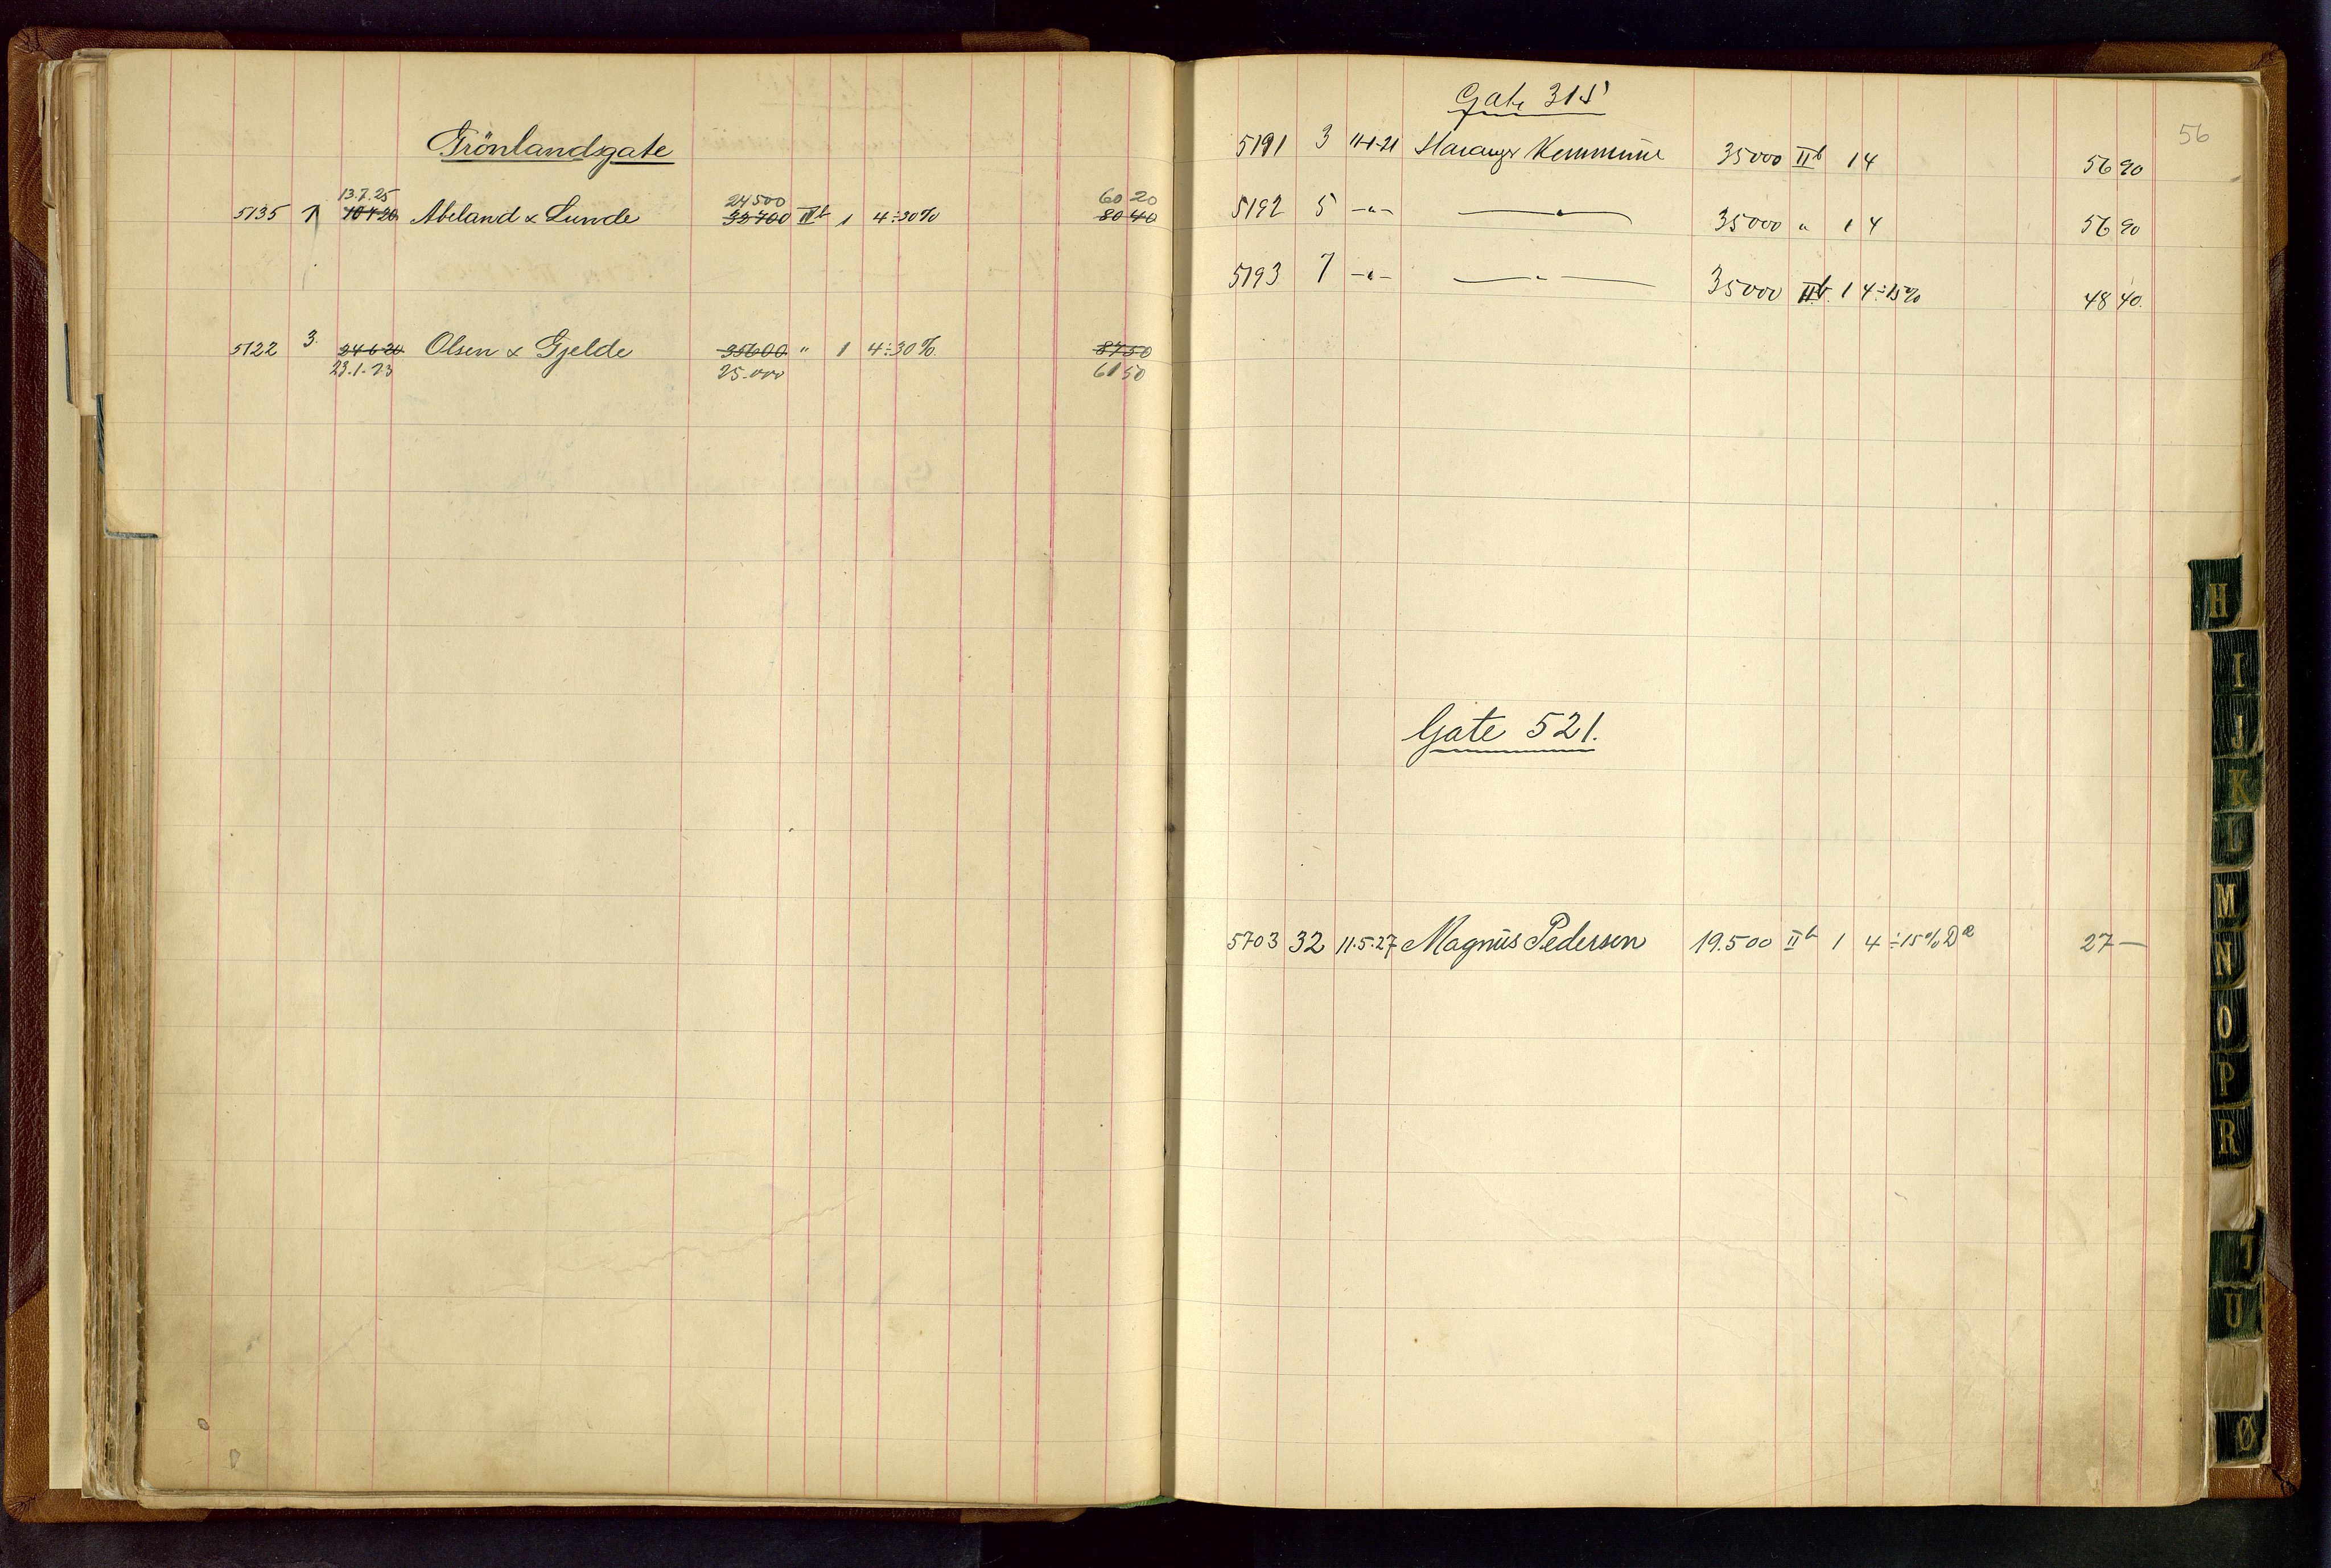 Grönlandsgate
13.7.25 24500 60 20
5135 1 10420 Abeland & Lunde 32700 IIb 1 4÷30% 80 40
5122 3. 24620 Olsen & Gjelde 35600 " 1 4÷30% 87 50
23.1.23 25.000 61 50
56
Gate 315
5191 3 11-1-21 Stavanger Kommune 35000 IIb 1 4 56 90
5192 5 -"- -"- 35000 " 1 4 56 90
5193 7 -"- -"- 35000 IIb 1 4÷15% 48 40
Gate 521.
5703 32 11.5.27 Magnus Pedersen 19.500 IIb 1 4÷15% 27 —
H
I
J
K
L
M
N
O
P
R
T
U
Ø